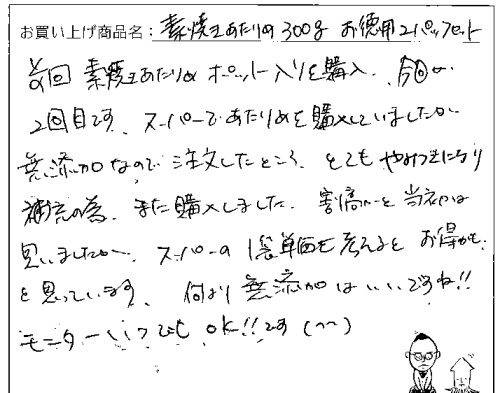 お買い上げ商品名：素焼きあたりめ300g お徳用2パックセット
前回 素焼きあたりめ ポット入りを購入、今回が
2回目です、スーパーであたりめを購入していましたが
無添加なので注文したところ、とてもやみつきになり
補充の為、また購入しました、割高かと当初は
思いましたが、スーパーの1袋単価を考えるとお得かも、
と思っています、何より無添加はいいですね!!
モニターいつでもOK!!です(^^)